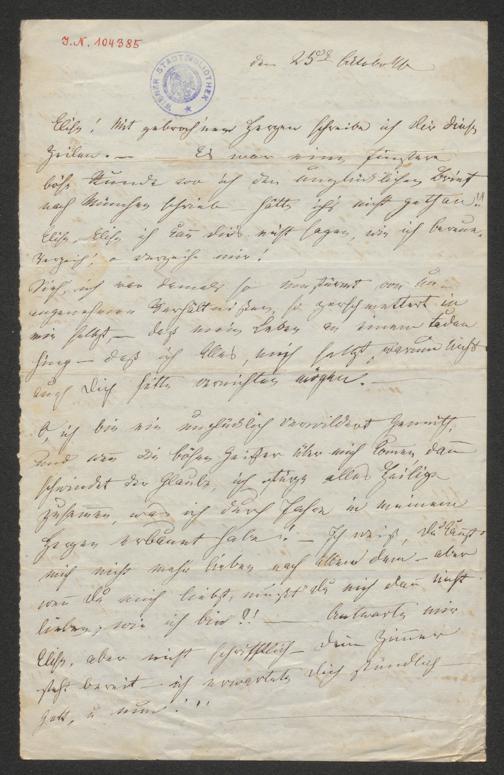 J.N. 104385
WIENER STADTBIBLIOTHEK
den 25ten October
Elise! Mit gebrochnem Herzen schreibe ich Dir diese
Zeilen. — Es war eine finstere
böse Stunde wo ich den unglücklichen Brief
nach München schrieb hätte ich's nicht gethan!!
Elise, Elise ich kann dirs nicht sagen, wie ich bereue.
Verzeih! o verzeihe mir!
Sieh, ich war damals so umstürmt von un-
angenehmen Verhältnißen, so zerschmettert in
mir selbst, — daß mein Leben an einem Faden
hing — daß ich Alles, mich selbst, warum nicht
auch Dich hätte vernichten mögen. —
O, ich bin ein unglücklich verwildert Gemüth,
und wen die bösen Geister über mich komen dann
schwindet der Glaube, ich stürze alles Heilige
zusammen, was ich durch Jahre in meinem
Herzen erbaut habe! — Ich weiß, Du kannst
mich nicht mehr lieben nach allem dem — aber
wen Du mich liebst, mußt Du mich dan nicht
lieben, wie ich bin?!! — Antworte mir
Elise, aber nicht schriftlich — dein Zimmer
steht bereit — ich erwarte Dich stündlich —
Gott, u nun!!!